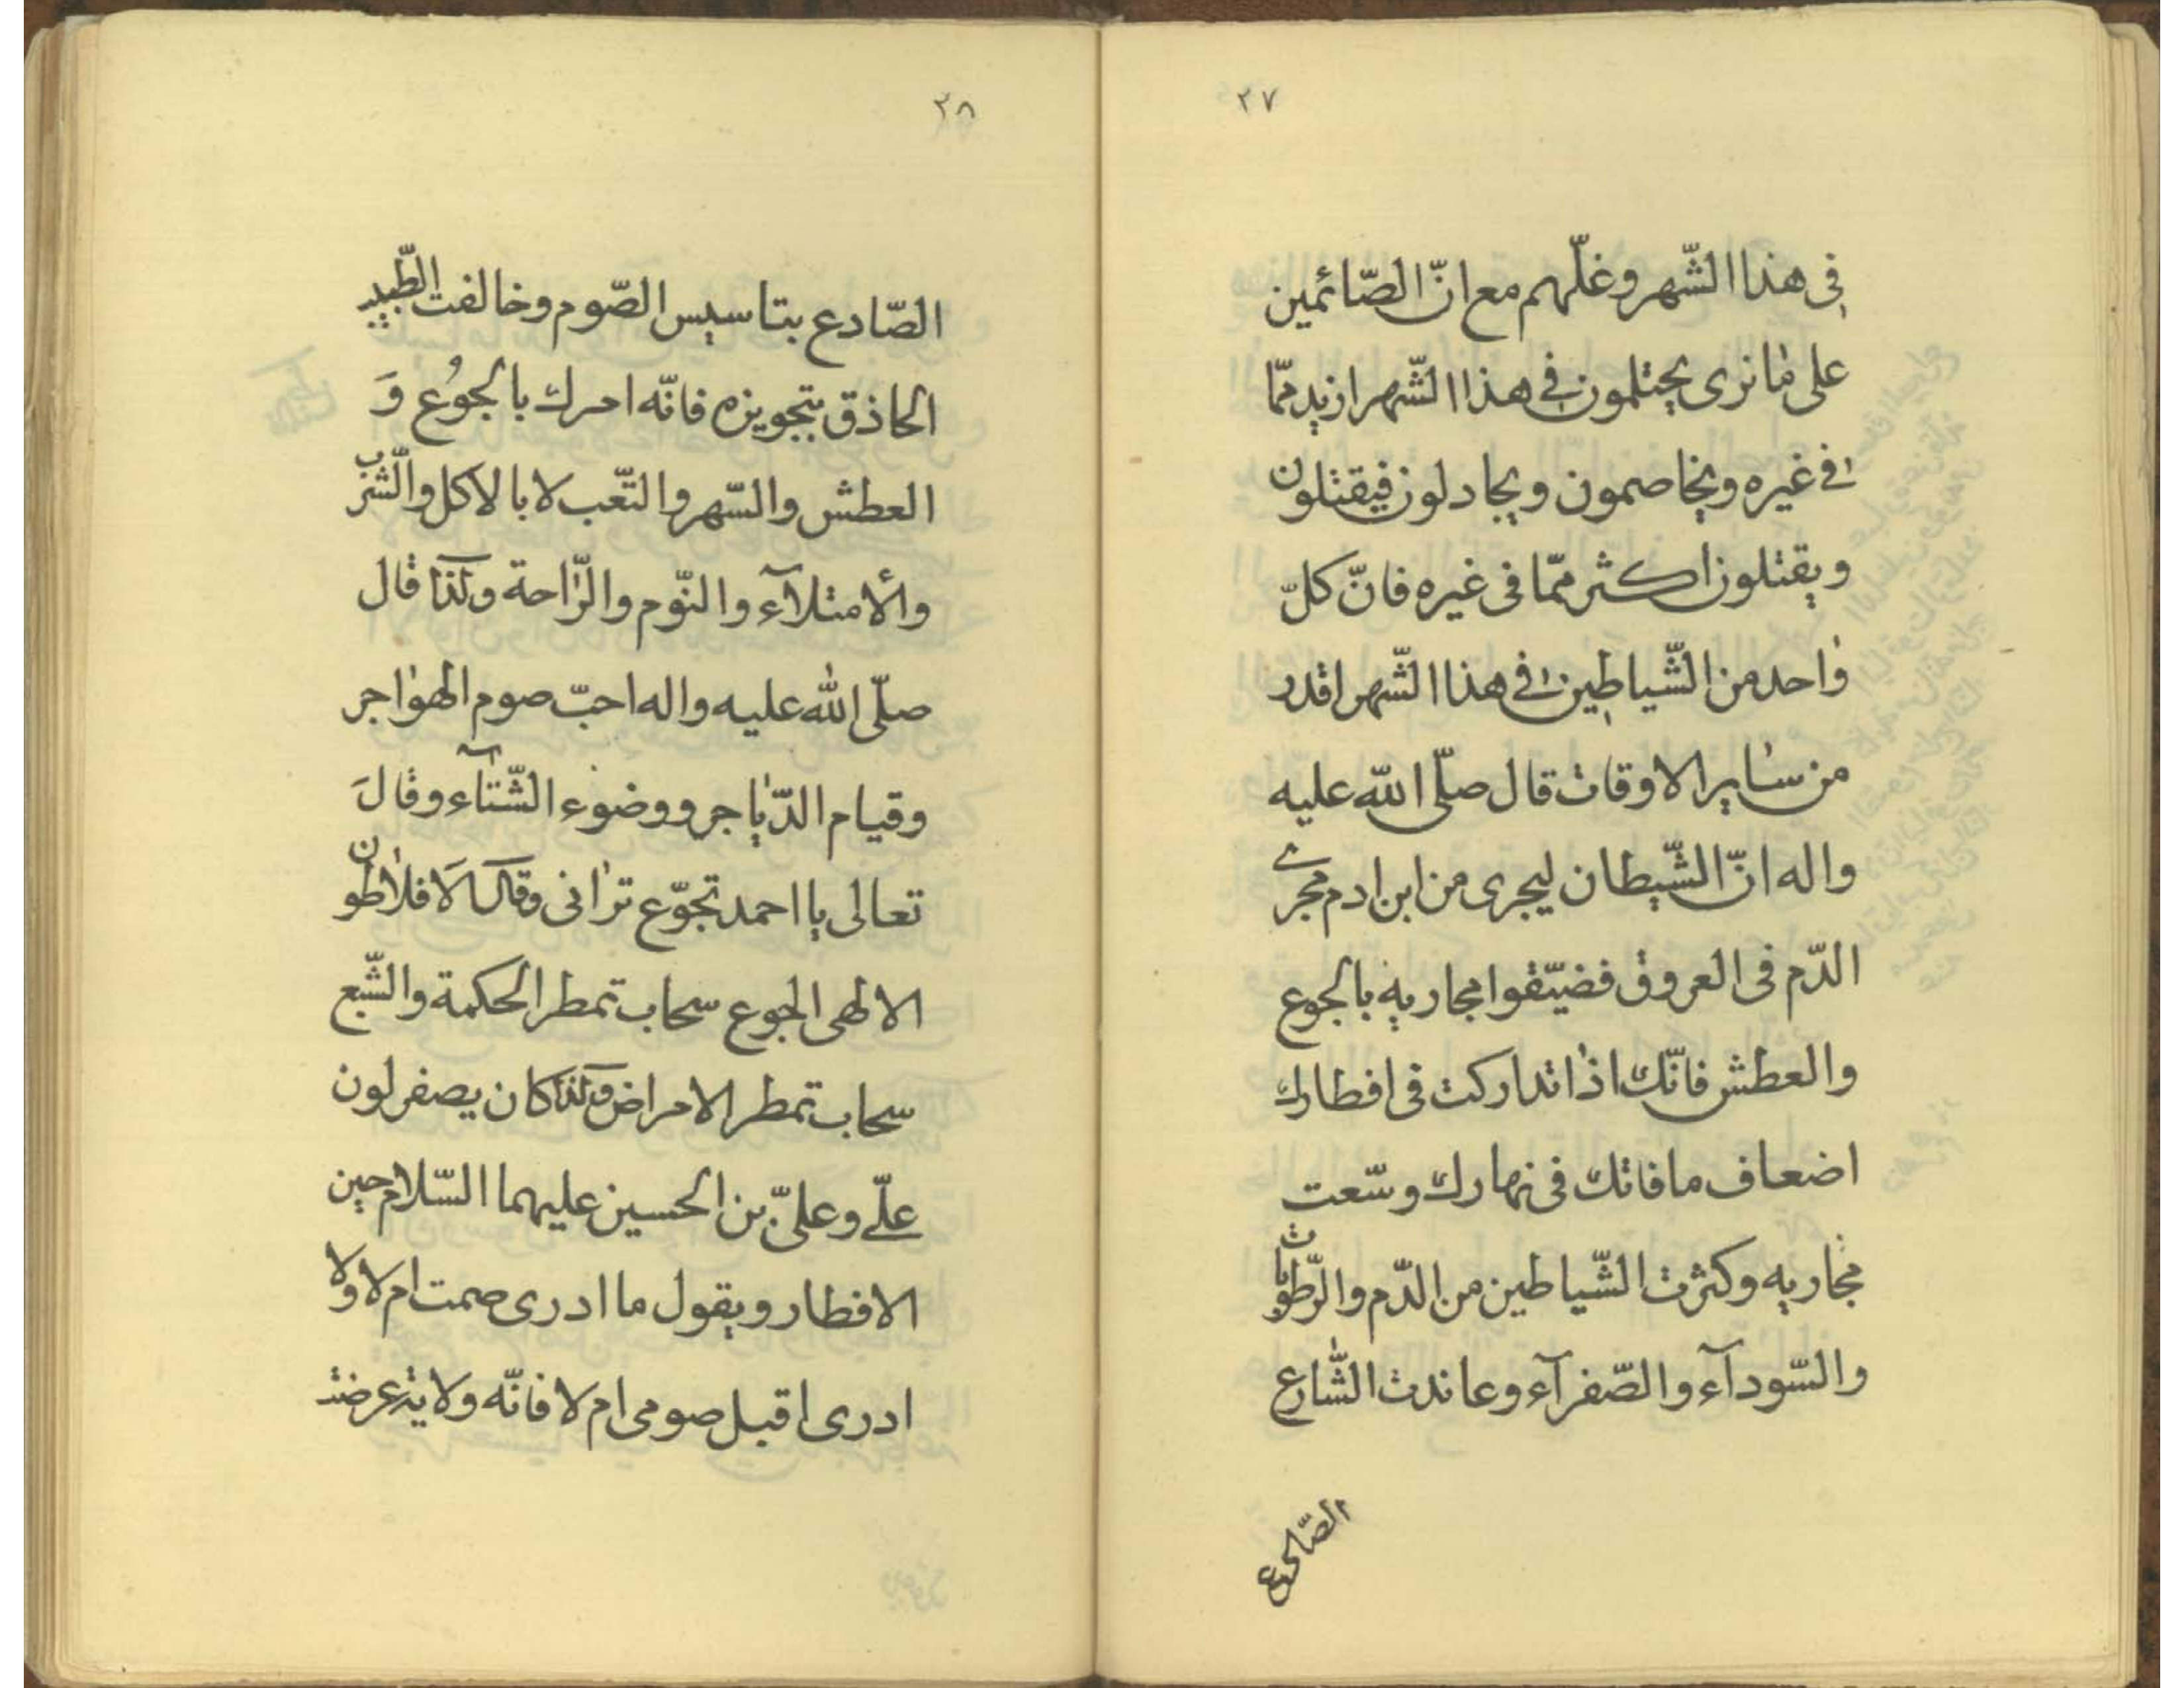 ٢٧
فى هذا الشّهر وغلّهم مع انّ الصّائمين
على ما نرى يحتلمون فى هذا الشّهر ازيد ممّا
فى غيره ويخاصمون ويجادلون فيقتلون
ويقتلون اكثر ممّا فى غيره فانّ كلّ
واحد من الشّياطين فى هذا الشّهر اقدر
من ساير الاوقات قال صلّى الله عليه
واله انّ الشّيطان ليجرى من ابن ادم مجرى
الدّم فى العروق فضيّقوا مجاريه بالجوع
والعطش فانّك اذا تداركت فى افطارك
اضعاف ما فاتك فى نهارك وسّعت
مجاريه وكثرت الشّياطين من الدّم والرّطوبات
والسّودآء والصّفرآء وعاندت الشّارع
الصّادع
٢٨
الصّادع بتاسيس الصّوم وخالفت الطّبيب
الحاذق بتجويزه فانّه امرك بالجوُع وَ
العطش والسّهر والتّعب لا بالاكل والشّرب
والأمتلآء والنّوم والرّاحة ولذا قال
صلّى الله عليه واله احبّ صوم الهواجر
وقيام الدّياجر ووضوء الشّتآء وقالَ
تعالى يا احمد تجوّع ترانى وقال افلاطون
الالهى الجوع سحاب تمطر الحكمة والشّبع
سحاب تمطر الامراض ولذا كان يصفر لون
علّى وعلىّ بن الحسين عليهما السّلام حين
الافطار ويقول ما ادرى صمت ام لا ولا
ادرى اقبل صومى ام لا فانّه ولايتہ عرضت